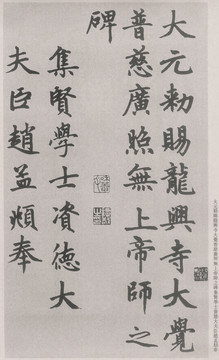 大元勑賜龍興寺大覺
普慈廣照無上帝師之
碑
集賢學士資德大
夫臣趙孟頫奉